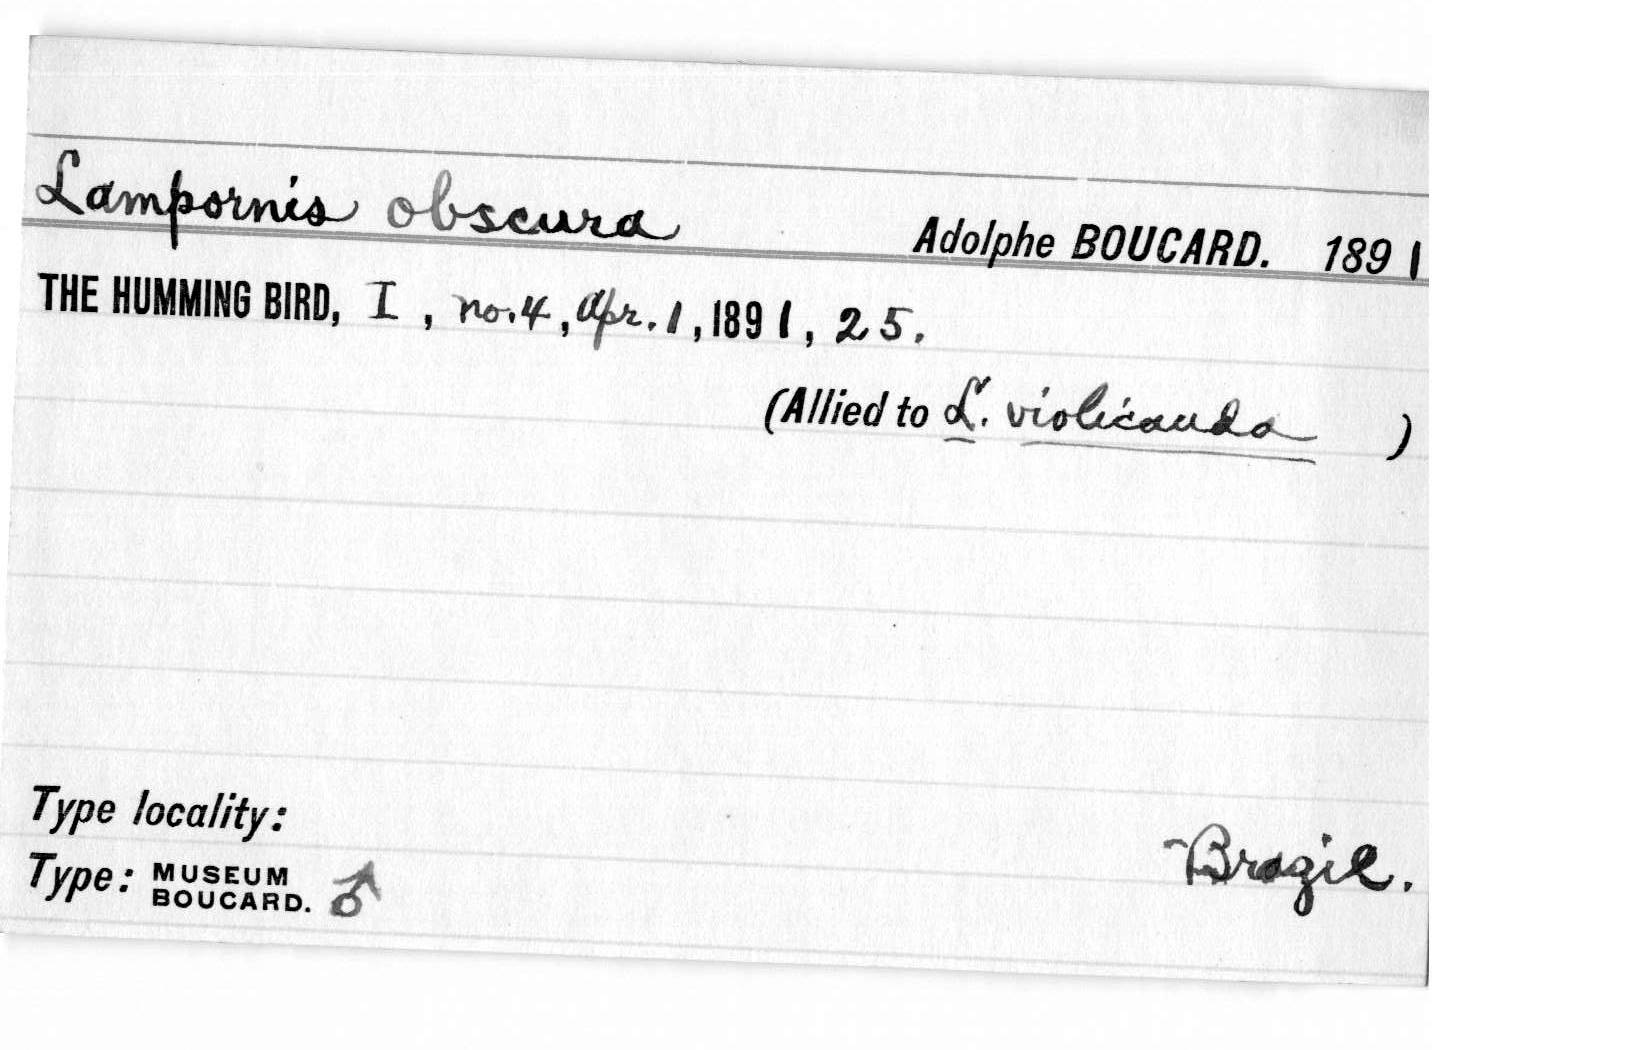 Lampornis obscura Adolphe BOUCARD. 1891
THE HUMMING BIRD, I, no. 4, Apr. 1, 1891, 25.
(Allied to L. violicauda )
Type locality:
Brazil.
Type: MUSEUM BOUCARD. ♂